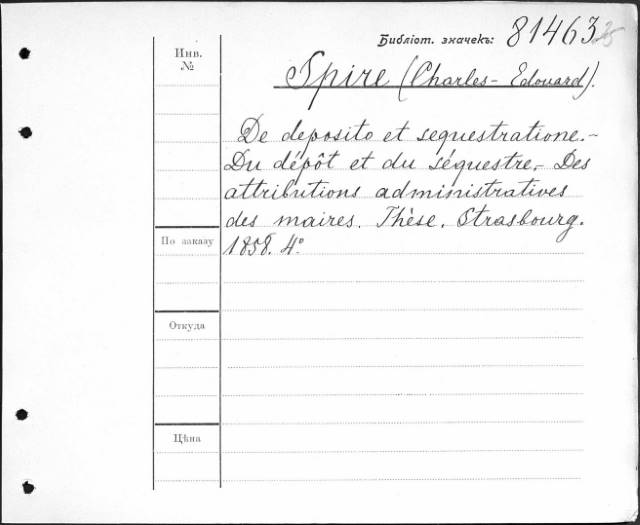 Библіот. значекъ: 81463
Инв.
№
Spire (Charles-Edouard).
De deposito et sequestratione.-
Du dépôt et du séquestre.- Des
attributions administratives
des maires. Thèse. Strasbourg.
По заказу
1858. 4º
Откуда
Цѣна